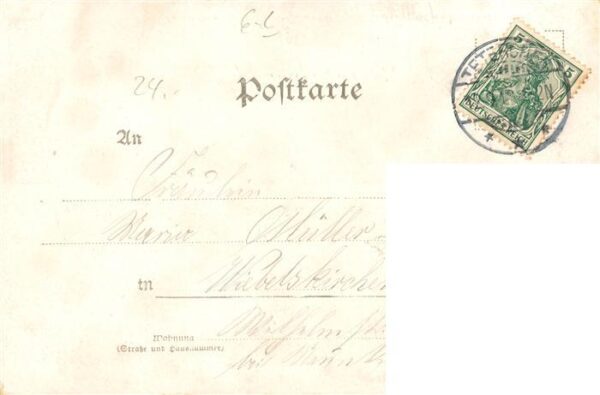 6-L
24.
Postkarte
5 5
DEUTSCHES REICH
An
Fräulein
Maria Müller
in
Wiebelskirchen
Wohnung
(Straße und Hausnummer)
Wilhelm
bei